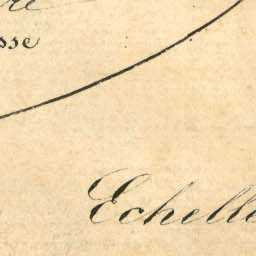 re
sse
Echelle